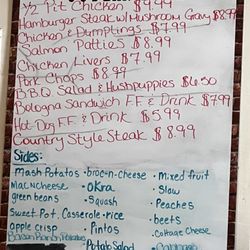 1/2 Pit Chicken $9.99
Hamburger Steak w/Mushroom Gravy $8.99
Chicken & Dumplings $7.99
Salmon Patties $8.99
Chicken Livers $7.99
Pork Chops $8.99
B.B.Q. Salad & Hushpuppies $6.50
Bologna Sandwich FF & Drink $7.99
Hot Dog FF & Drink $5.99
Country Style Steak $8.99
Sides:
Mash Potatos • broc-n-cheese • Mixed fruit
Mac n cheese • OKra • Slaw
green beans • Squash • Peaches
Sweet Pot. Casserole • rice • beets
apple crisp • Pintos • Cottage Cheese
Potato Salad